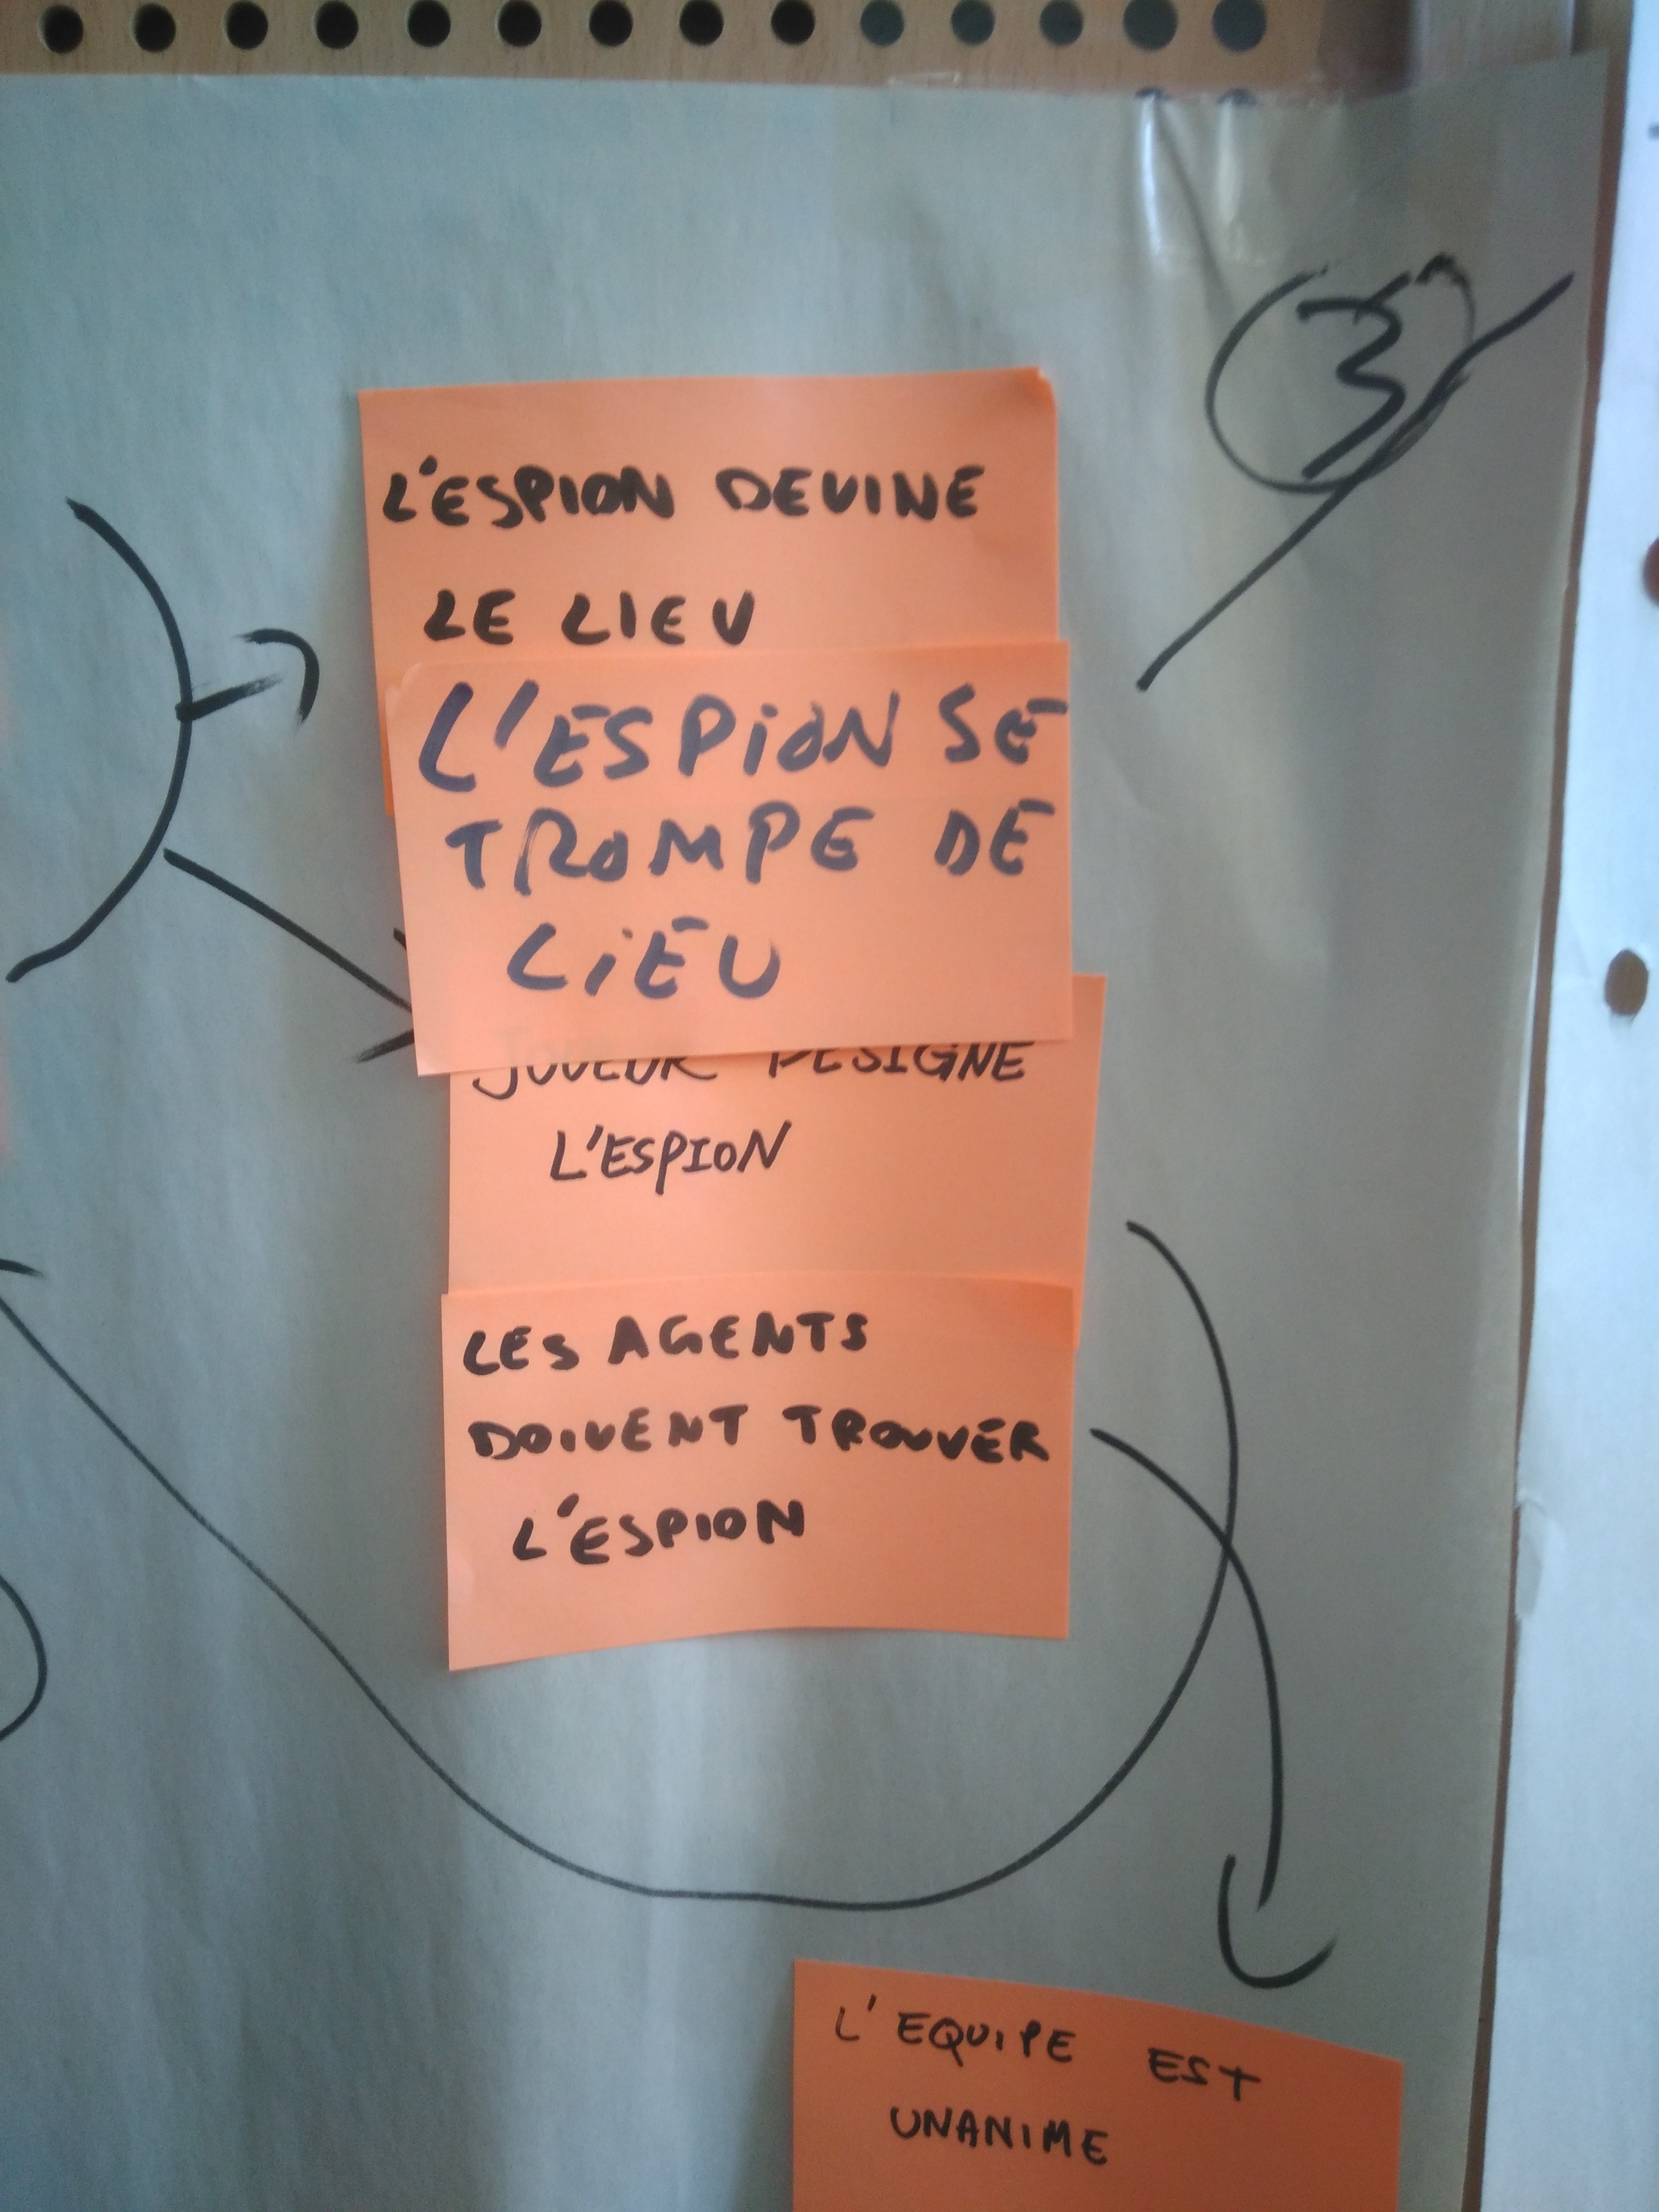 3
L'ESPION DEVINE
LE LIEU
L'ESPION SE
TROMPE DE
LIEU
JOUEUR DESIGNE
L'ESPION
LES AGENTS
DOIVENT TROUVER
L'ESPION
L'EQUIPE EST
UNANIME